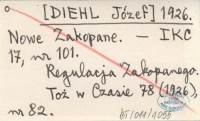 [DIEHL Józef] 1926.
Nowe Zakopane. — IKC
17, nr 101.
Regulacja Zakopanego.
Toż w Czasie 78 (1926),
nr 82.